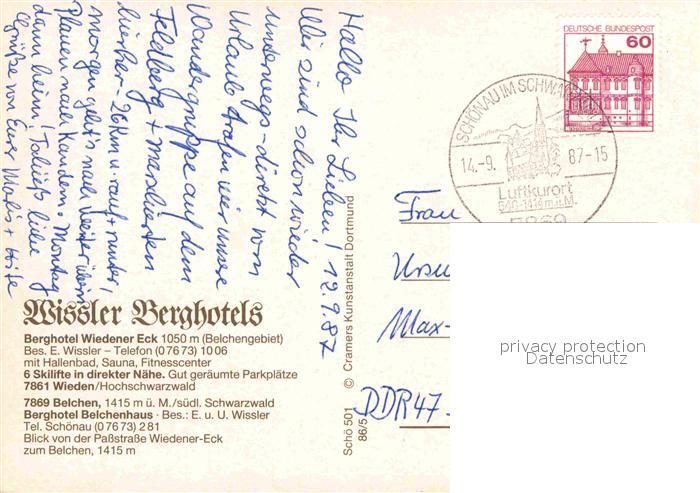 Hallo Ihr Lieben! 12.9.87
Wir sind schon wieder
unterwegs - direkt vom
Urlaub trafen wir unsere
Wandergruppe auf dem
Feldberg + marschierten
hierher - 26 km u. rauf + runter!
Morgen geht's nach
nach Kandern. Montag
dann heim! Tschüß liebe
Grüße von Eurer
DEUTSCHE BUNDESPOST
60
SCHÖNAU IM SCHWARZW
14.-9. 87-15
Luftkurort
540-1414 m ü.M.
7869
Frau
Ursu
Max-
DDR 47
privacy protection
Datenschutz
Wissler Berghotels
Berghotel Wiedener Eck 1050 m (Belchengebiet)
Bes. E. Wissler – Telefon (0 76 73) 10 06
mit Hallenbad, Sauna, Fitnesscenter
6 Skilifte in direkter Nähe. Gut geräumte Parkplätze
7861 Wieden/Hochschwarzwald
7869 Belchen, 1415 m ü. M./südl. Schwarzwald
Berghotel Belchenhaus · Bes.: E. u. U. Wissler
Tel. Schönau (0 76 73) 2 81
Blick von der Paßstraße Wiedener-Eck
zum Belchen, 1415 m
Schö 501 © Cramers Kunstanstalt Dortmund
86/5